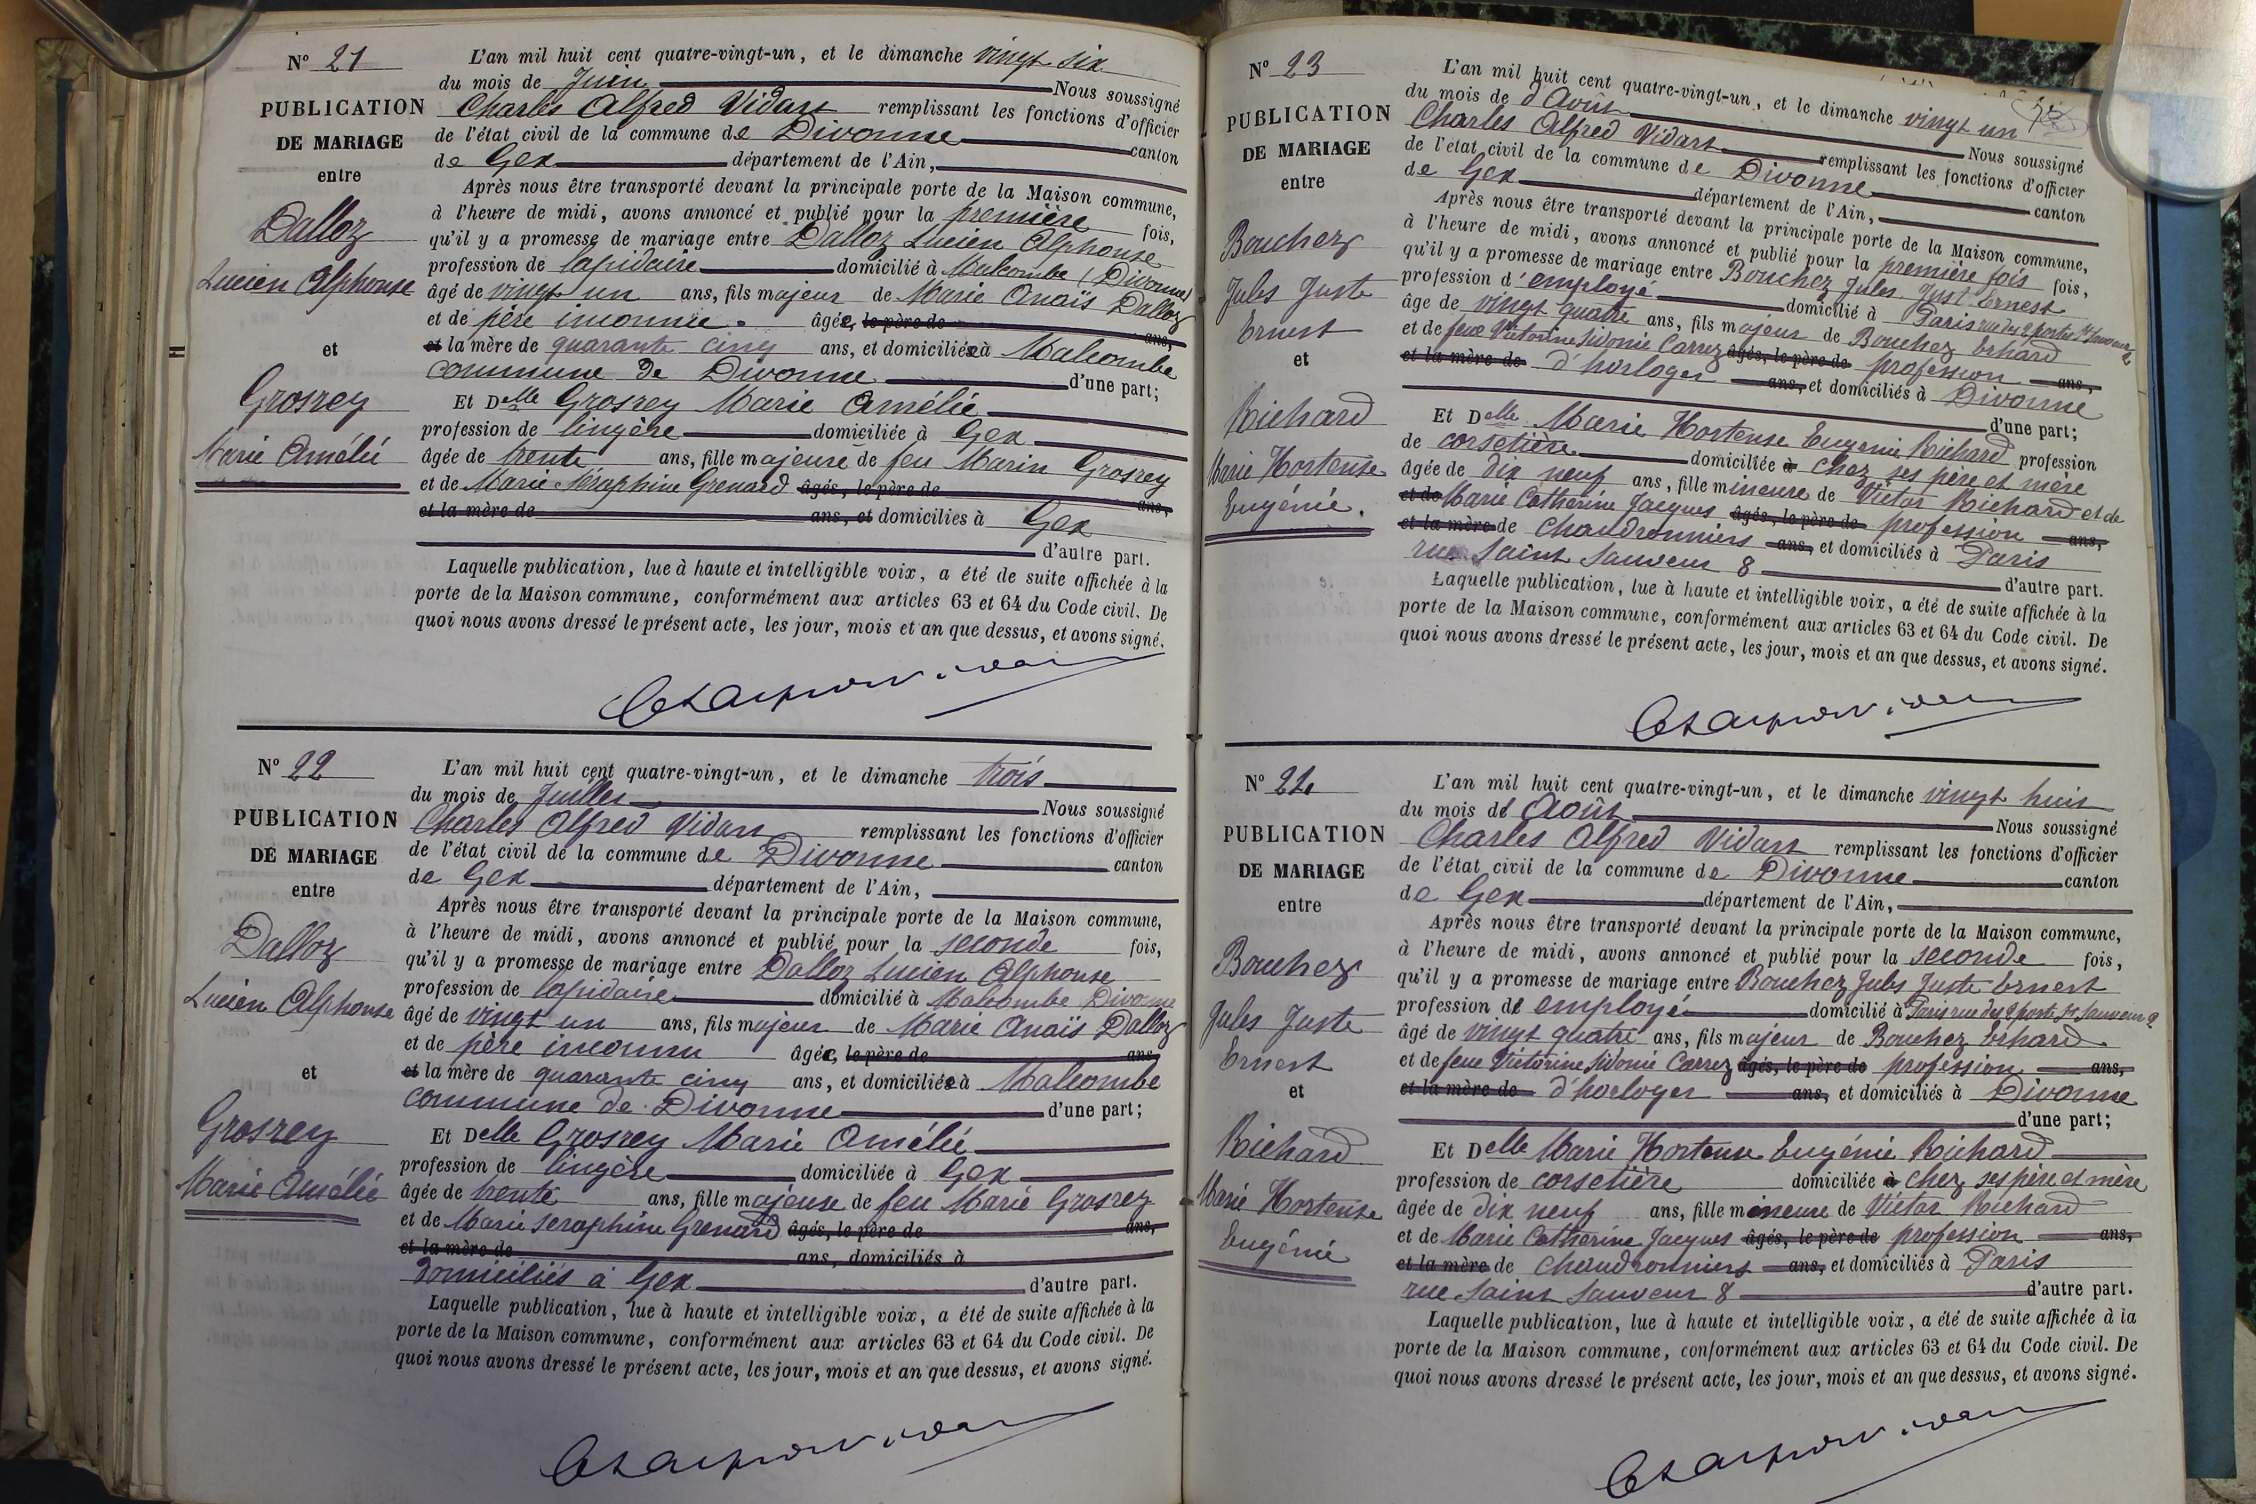 N° 21
PUBLICATION
DE MARIAGE
entre
Dalloz
Lucien Alphonse
et
Grosrey
Marie Amélie
L'an mil huit cent quatre-vingt-un, et le dimanche vingt six
du mois de Juin Nous soussigné
Charles Alfred Vidart remplissant les fonctions d'officier
de l'état civil de la commune de Divonne canton
de Gex département de l'Ain,
Après nous être transporté devant la principale porte de la Maison commune,
à l'heure de midi, avons annoncé et publié pour la première fois,
qu'il y a promesse de mariage entre Dalloz Lucien Alphonse
profession de lapidaire domicilié à Malcombe (Divonne)
âgé de vingt un ans, fils majeur de Marie Anaïs Dalloz
et de père inconnu. âgée, le père de ans,
et la mère de quarante cinq ans, et domiciliée à Malcombe
commune de Divonne d'une part;
Et Delle Grosrey Marie Amélie
profession de lingère domiciliée à Gex
âgée de trente ans, fille majeure de feu Marin Grosrey
et de Marie Séraphine Grenard âgés, le père de ans,
et la mère de ans, et domiciliés à Gex
d'autre part.
Laquelle publication, lue à haute et intelligible voix, a été de suite affichée à la
porte de la Maison commune, conformément aux articles 63 et 64 du Code civil. De
quoi nous avons dressé le présent acte, les jour, mois et an que dessus, et avons signé.
N° 22
PUBLICATION
DE MARIAGE
entre
Dalloz
Lucien Alphonse
et
Grosrey
Marie Amélie
L'an mil huit cent quatre-vingt-un, et le dimanche trois
du mois de Juillet Nous soussigné
Charles Alfred Vidart remplissant les fonctions d'officier
de l'état civil de la commune de Divonne canton
de Gex département de l'Ain,
Après nous être transporté devant la principale porte de la Maison commune,
à l'heure de midi, avons annoncé et publié pour la seconde fois,
qu'il y a promesse de mariage entre Dalloz Lucien Alphonse
profession de lapidaire domicilié à Malcombe Divonne
âgé de vingt un ans, fils majeur de Marie Anaïs Dalloz
et de père inconnu âgée, le père de ans,
et la mère de quarante cinq ans, et domiciliée à Malcombe
commune de Divonne d'une part;
Et Delle Grosrey Marie Amélie
profession de lingère domiciliée à Gex
âgée de trente ans, fille majeure de feu Marie Grosrey
et de Marie Seraphine Grenard âgés, le père de ans,
et la mère de ans, domiciliés à
domiciliés à Gex d'autre part.
Laquelle publication, lue à haute et intelligible voix, a été de suite affichée à la
porte de la Maison commune, conformément aux articles 63 et 64 du Code civil. De
quoi nous avons dressé le présent acte, les jour, mois et an que dessus, et avons signé.
N° 23
PUBLICATION
DE MARIAGE
entre
Bouchez
Jules Juste
Ernest
et
Richard
Marie Hortense
Eugénie.
L'an mil huit cent quatre-vingt-un, et le dimanche vingt un
du mois de d'Août Nous soussigné
Charles Alfred Vidart remplissant les fonctions d'officier
de l'état civil de la commune de Divonne canton
de Gex département de l'Ain,
Après nous être transporté devant la principale porte de la Maison commune,
à l'heure de midi, avons annoncé et publié pour la première fois fois,
qu'il y a promesse de mariage entre Bouchez Jules Just Ernest
profession d'employé domicilié à Paris rue des 2 portes St Sauveur 2
âgé de vingt quatre ans, fils majeur de Bouchez Erhard
et de feue Victorine Sidonie Carrez âgés, le père de profession ans,
et la mère de d'horloger ans, et domiciliés à Divonne
d'une part;
Et Delle Marie Hortense Eugenie Richard profession
de corsetière domiciliée à chez ses père et mère
âgée de dix neuf ans, fille mineure de Victor Richard et de
et de Marie Catherine Jacques âgés, le père de profession ans,
et la mère de de chaudronniers ans, et domiciliés à Paris
rue Saint Sauveur 8 d'autre part.
Laquelle publication, lue à haute et intelligible voix, a été de suite affichée à la
porte de la Maison commune, conformément aux articles 63 et 64 du Code civil. De
quoi nous avons dressé le présent acte, les jour, mois et an que dessus, et avons signé.
N° 24
PUBLICATION
DE MARIAGE
entre
Bouchez
Jules Juste
Ernest
et
Richard
Marie Hortense
Eugénie
L'an mil huit cent quatre-vingt-un, et le dimanche vingt huit
du mois d'Août Nous soussigné
Charles Alfred Vidart remplissant les fonctions d'officier
de l'état civil de la commune de Divonne canton
de Gex département de l'Ain,
Après nous être transporté devant la principale porte de la Maison commune,
à l'heure de midi, avons annoncé et publié pour la seconde fois,
qu'il y a promesse de mariage entre Bouchez Jules Juste Ernest
profession d'employé domicilié à Paris rue des 2 portes St Sauveur 2
âgé de vingt quatre ans, fils majeur de Bouchez Erhard
et de feue Victorine Sidonie Carrez âgés, le père de profession ans,
et la mère de d'horloger ans, et domiciliés à Divonne
d'une part;
Et Delle Marie Hortense Eugénie Richard
profession de corsetière domiciliée à chez ses père et mère
âgée de dix neuf ans, fille mineure de Victor Richard
et de Marie Catherine Jacques âgés, le père de profession ans,
et la mère de chaudronniers ans, et domiciliés à Paris
rue Saint Sauveur 8 d'autre part.
Laquelle publication, lue à haute et intelligible voix, a été de suite affichée à la
porte de la Maison commune, conformément aux articles 63 et 64 du Code civil. De
quoi nous avons dressé le présent acte, les jour, mois et an que dessus, et avons signé.